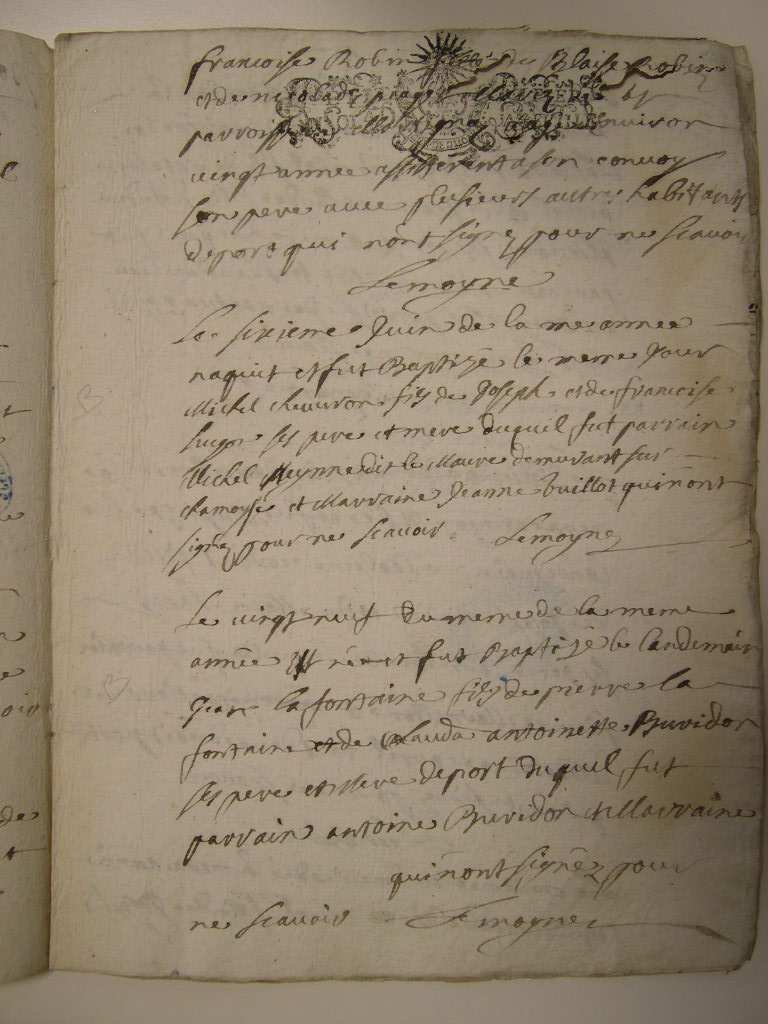 francoise Robin fille de Blaise Robin
et de nicolade
parroisse environ
vingt année assisterent a son convoy
son pere avec plusieurs autres habitants
deport qui n'ont signez pour ne scavoir
Lemoyne
Le sixieme Juin de la me annee
naquit et fut Baptizé le meme Jour
Michel chevuron fils de Joseph et de francoise
hugon ses pere et mere duquel fut parrain
Michel Meynne dit le Maure demurant sur
chamoyse et Marraine Jeanne buillot qui n'ont
signez pour ne scavoir Lemoyne
Le vingt neuf du meme de la meme
année est né et fut Baptizé le landemain
Jean la fontaine fils de pierre la
fontaine et de Clauda antoinette Buvidon
ses pere et Mere deport duquel fut
parrain antoine Buvidon et Marraine
qui n'ont signéz pour
ne scavoir Lemoyne